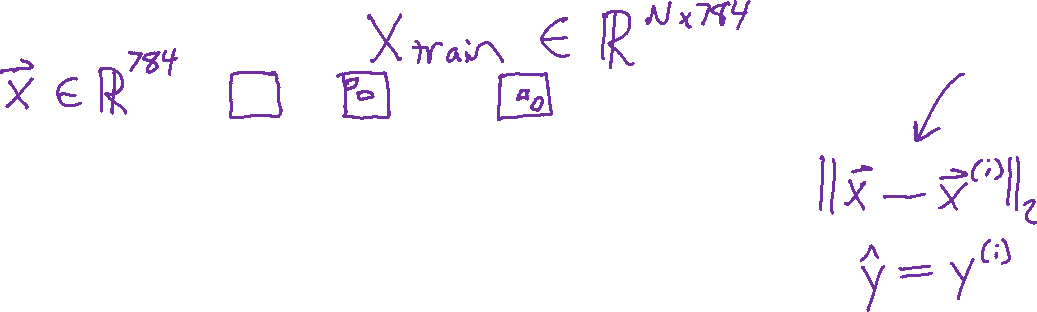 X_train ∈ ℝ^{N×784}
x⃗ ∈ ℝ^{784}
||x⃗ − x⃗^{(i)}||_2
ŷ = y^{(i)}